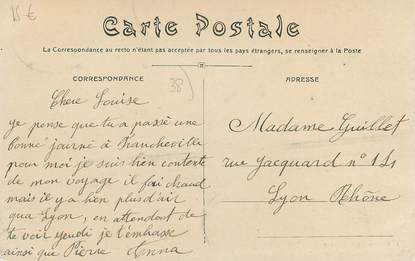 15 €
Carte Postale
La Correspondance au recto n'étant pas acceptée par tous les pays étrangers, se renseigner à la Poste
CORRESPONDANCE
38)
Chere Louise
je pense que tu a passè une
bonne journè à Francheville
pour moi je suis bien contente
de mon voyage il fai chaud
mais il y a bien plus d'air
qua Lyon, en attendant de
te voir jeudi je t'embrasse
ainsi que Pierre Anna
ADRESSE
Madame Guillet
rue Jacquard n° 14
Lyon Rhône